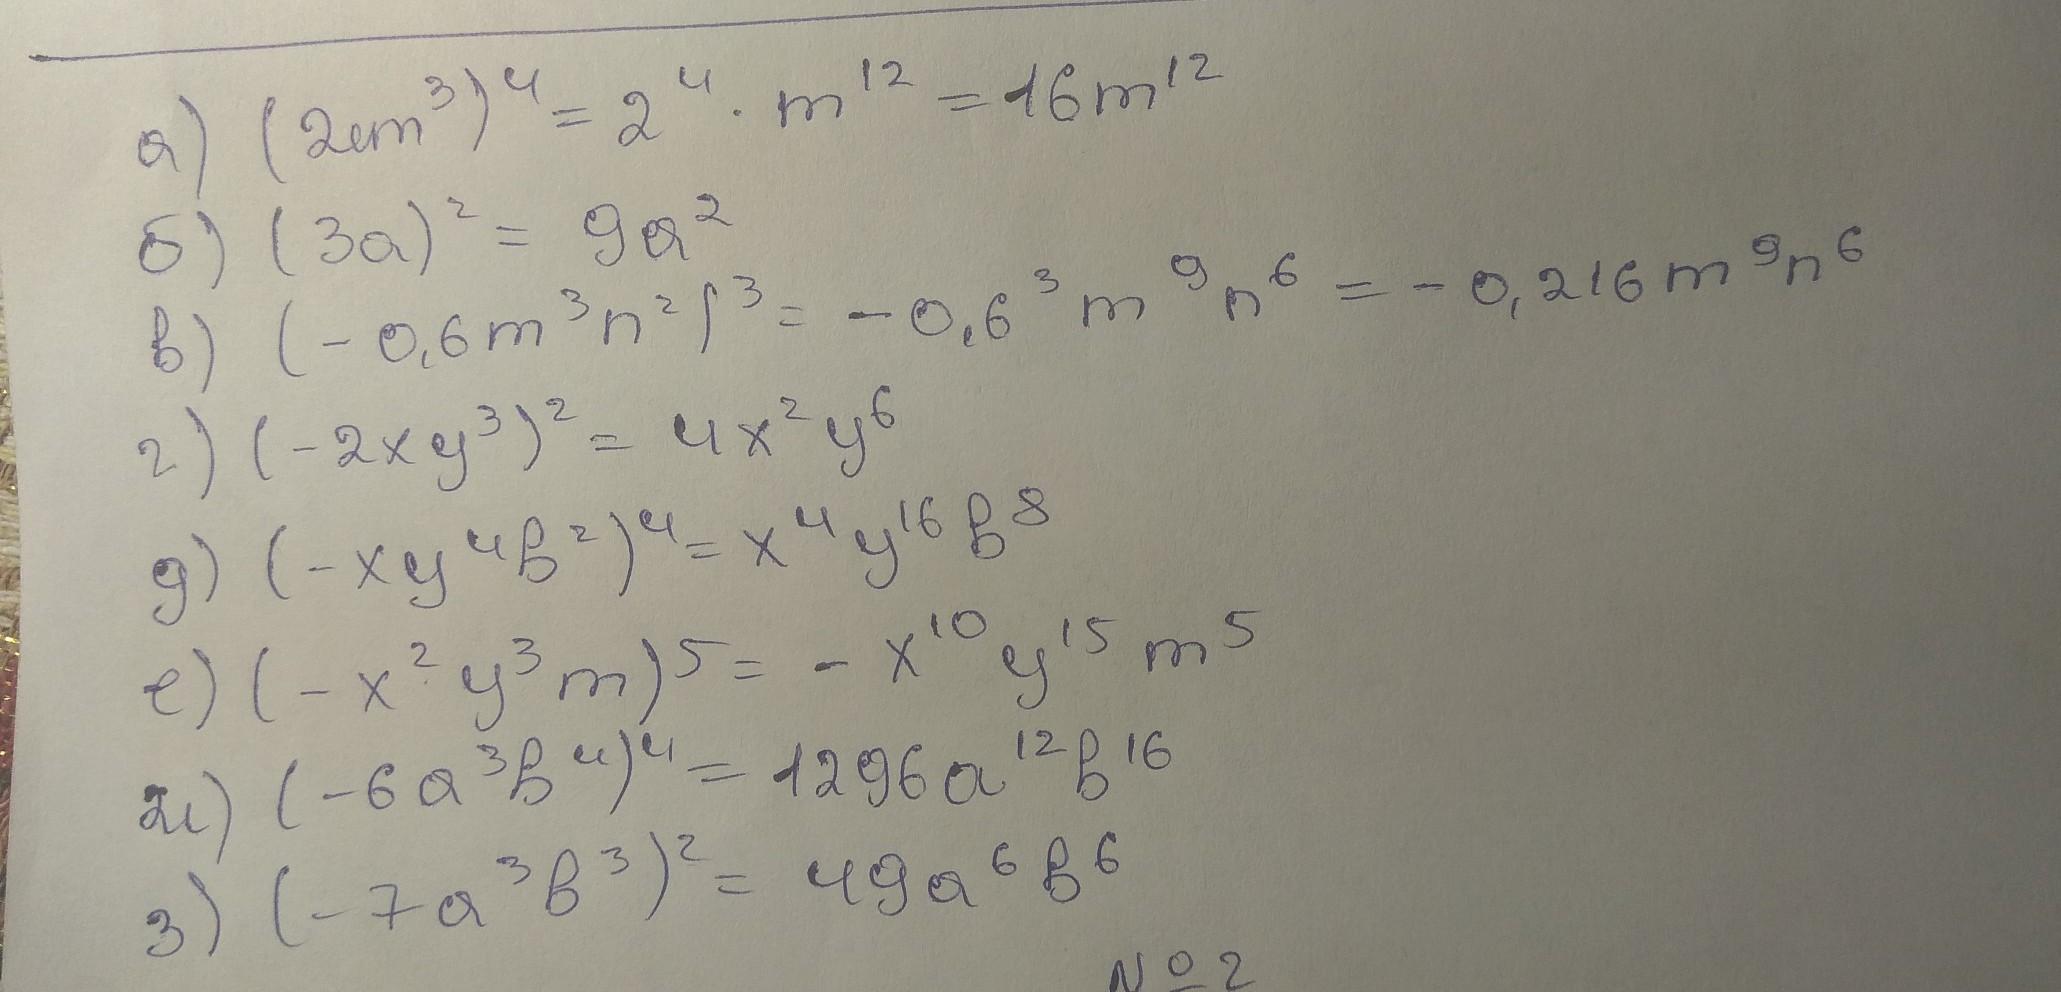 а) (2m³)⁴ = 2⁴ · m¹² = 16m¹²
б) (3a)² = 9a²
в) (-0,6m³n²)³ = -0,6³m⁹n⁶ = -0,216m⁹n⁶
г) (-2xy³)² = 4x²y⁶
д) (-xy⁴b²)⁴ = x⁴y¹⁶b⁸
е) (-x²y³m)⁵ = -x¹⁰y¹⁵m⁵
ж) (-6a³b⁴)⁴ = 1296a¹²b¹⁶
з) (-7a³b³)² = 49a⁶b⁶
№2